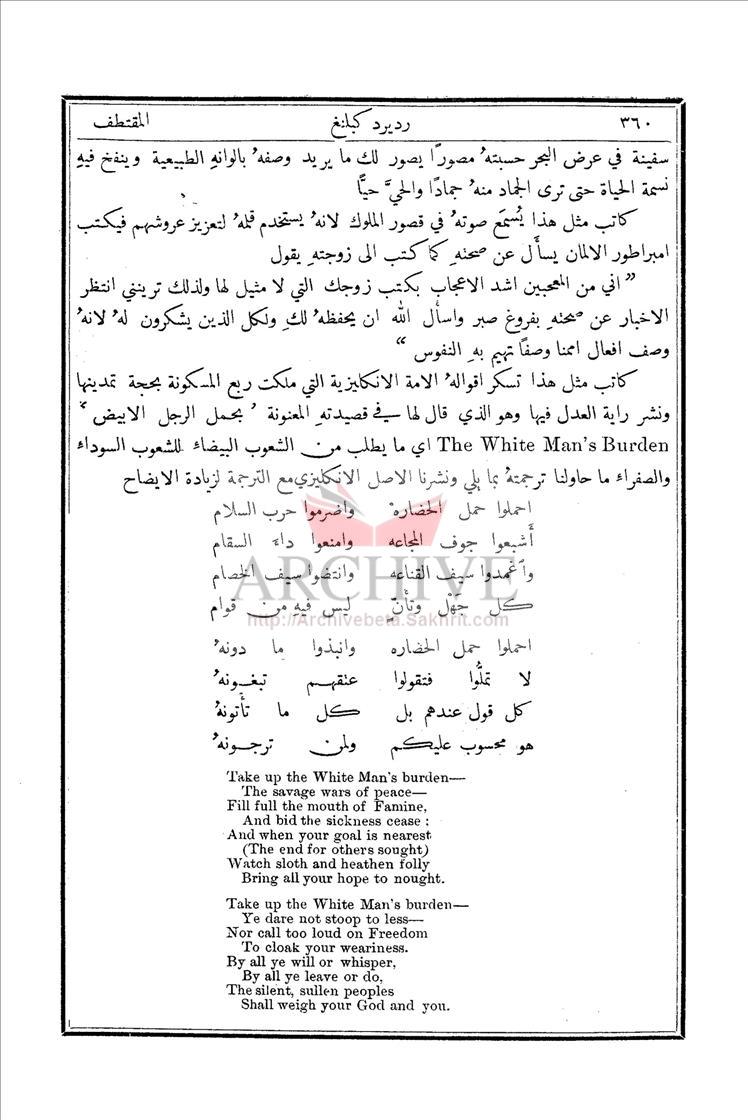 ٣٦٠ رديرد كبلنغ المقتطف
سفينة في عرض البحر حسبتهُ مصوّرًا يصور لك ما يريد وصفهُ بالوانهِ الطبيعية وينفخ فيهِ
نسمة الحياة حتى ترى الجماد منهُ جمادًا والحيَّ حيًّا
كاتب مثل هذا يُسمَع صوتهُ في قصور الملوك لانهُ يستخدم قلمهُ لتعزيز عروشهم فيكتب
امبراطور الالمان يسأَل عن صحتهِ كما كتب الى زوجتهِ يقول
" اني من المعجبين اشد الاعجاب بكتب زوجك التي لا مثيل لها ولذلك ترينني انتظر
الاخبار عن صحتهِ بفروغ صبر واسأَل الله ان يحفظهُ لكِ ولكل الذين يشكرون لهُ لانهُ
وصف افعال امتنا وصفًا تهيم بهِ النفوس "
كاتب مثل هذا تسكر اقوالهُ الامة الانكليزية التي ملكت ربع المسكونة بحجة تمدينها
ونشر راية العدل فيها وهو الذي قال لها في قصيدتهِ المعنونة " بحمل الرجل الابيض "
The White Man's Burden اي ما يطلب من الشعوب البيضاء للشعوب السوداء
والصفراء ما حاولنا ترجمتهُ بما يلي ونشرنا الاصل الانكليزي مع الترجمة لزيادة الايضاح
احملوا حمل الحضاره واضرموا حرب السلام
أَشبعوا جوف المجاعه وامنعوا داء السقام
وأغمدوا سيف القناعه وانتضوا سيف الخصام
كل جَهْل وتأَنٍ ليس فيهِ من قوام
احملوا حمل الحضاره وانبذوا ما دونهُ
لا تملُّوا فتقولوا عتقهم تبغونهُ
كل قول عندهم بل كل ما تأتونهُ
هو محسوب عليكم ولمن ترجونهُ
Take up the White Man's burden—
The savage wars of peace—
Fill full the mouth of Famine,
And bid the sickness cease :
And when your goal is nearest
(The end for others sought)
Watch sloth and heathen folly
Bring all your hope to nought.
Take up the White Man's burden—
Ye dare not stoop to less—
Nor call too loud on Freedom
To cloak your weariness.
By all ye will or whisper,
By all ye leave or do,
The silent, sullen peoples
Shall weigh your God and you.
ARCHIVE
http://Archivebeta.Sakhrit.com